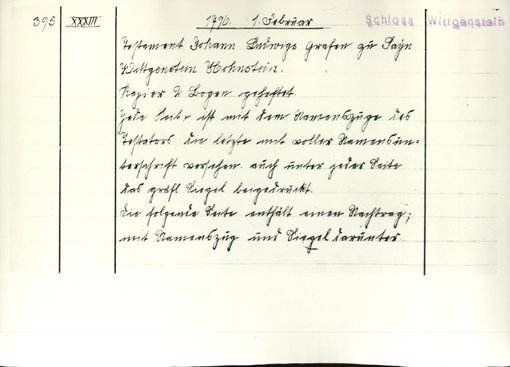 395 XXXIII 1796. 1. Februar Schloss Wittgenstein
Testament Johann Ludwigs Grafen zu Sayn
Wittgenstein Hohnstein.
Papier 2 Bogen geheftet.
Jede Seite ist mit dem Namenszuge des
Testators die letzte mit voller Namensun-
terschrift versehen auch unter jeder Seite
das gräfl Siegel beigedruckt.
Die folgende Seite enthält einen Nachtrag;
mit Namenszug und Siegel darunter.